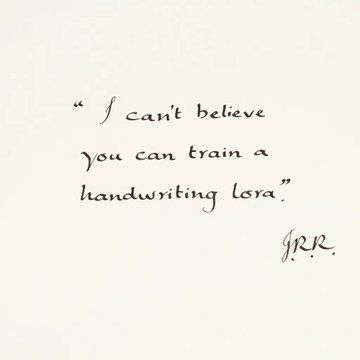 “ I can't believe
you can train a
handwriting lora”.
J.R.R.